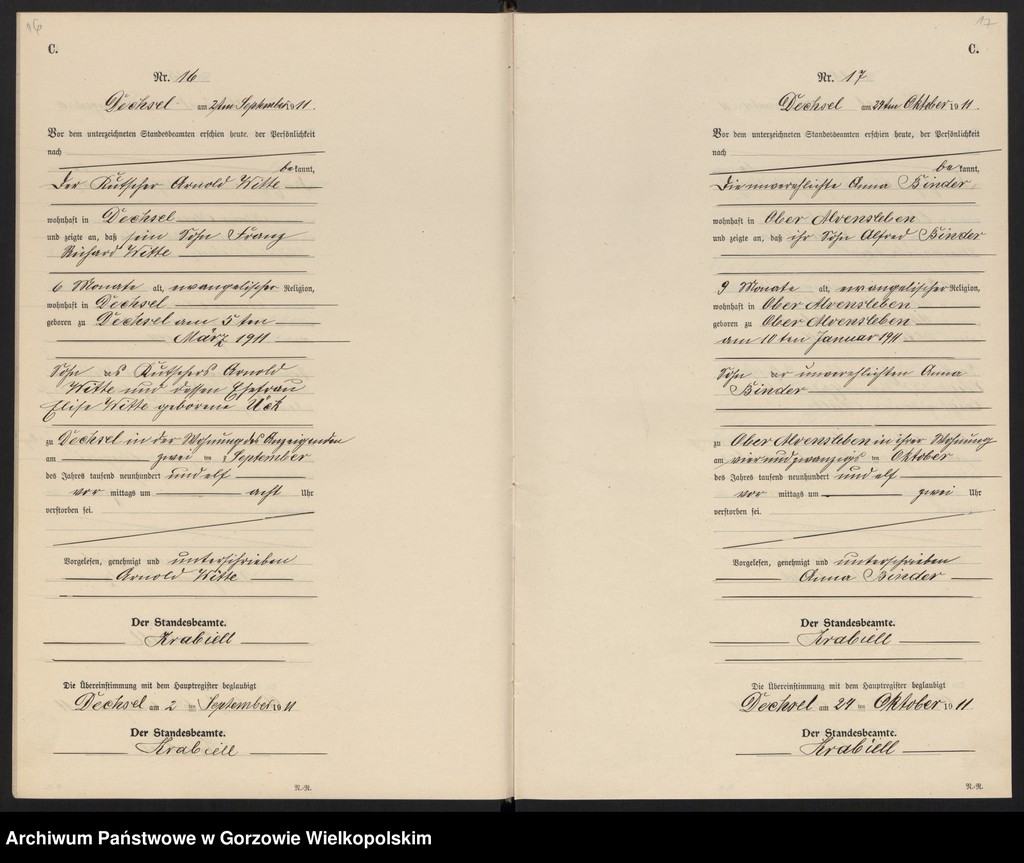 16
C.
Nr. 16
Dechsel am 2ten September 1911.
Vor dem unterzeichneten Standesbeamten erschien heute, der Persönlichkeit
nach
be kannt,
Der Kutscher Arnold Witte
wohnhaft in Dechsel
und zeigte an, daß sein Sohn Franz
Richard Witte
6 Monate alt, evangelischer Religion,
wohnhaft in Dechsel
geboren zu Dechsel am 5ten
März 1911
Sohn des Kutschers Arnold
Witte und dessen Ehefrau
Elise Witte geborene Uck
zu Dechsel in der Wohnung des Anzeigenden
am zwei ten September
des Jahres tausend neunhundert und elf
vor mittags um acht Uhr
verstorben sei.
Vorgelesen, genehmigt und unterschrieben
Arnold Witte
Der Standesbeamte.
Krabiell
Die Übereinstimmung mit dem Hauptregister beglaubigt
Dechsel am 2 ten September 1911
Der Standesbeamte.
Krabiell
N.-N.
17
C.
Nr. 17
Dechsel am 24ten Oktober 1911.
Vor dem unterzeichneten Standesbeamten erschien heute, der Persönlichkeit
nach
be kannt,
Die unverehlichte Anna Binder
wohnhaft in Ober Alvensleben
und zeigte an, daß ihr Sohn Alfred Binder
9 Monate alt, evangelischer Religion,
wohnhaft in Ober Alvensleben
geboren zu Ober Alvensleben
am 10ten Januar 1911
Sohn der unverehlichten Anna
Binder
zu Ober Alvensleben in ihrer Wohnung
am vierundzwanzigs ten Oktober
des Jahres tausend neunhundert und elf
vor mittags um zwei Uhr
verstorben sei.
Vorgelesen, genehmigt und unterschrieben
Anna Binder
Der Standesbeamte.
Krabiell
Die Übereinstimmung mit dem Hauptregister beglaubigt
Dechsel am 24 ten Oktober 1911
Der Standesbeamte.
Krabiell
N.-N.
Archiwum Państwowe w Gorzowie Wielkopolskim